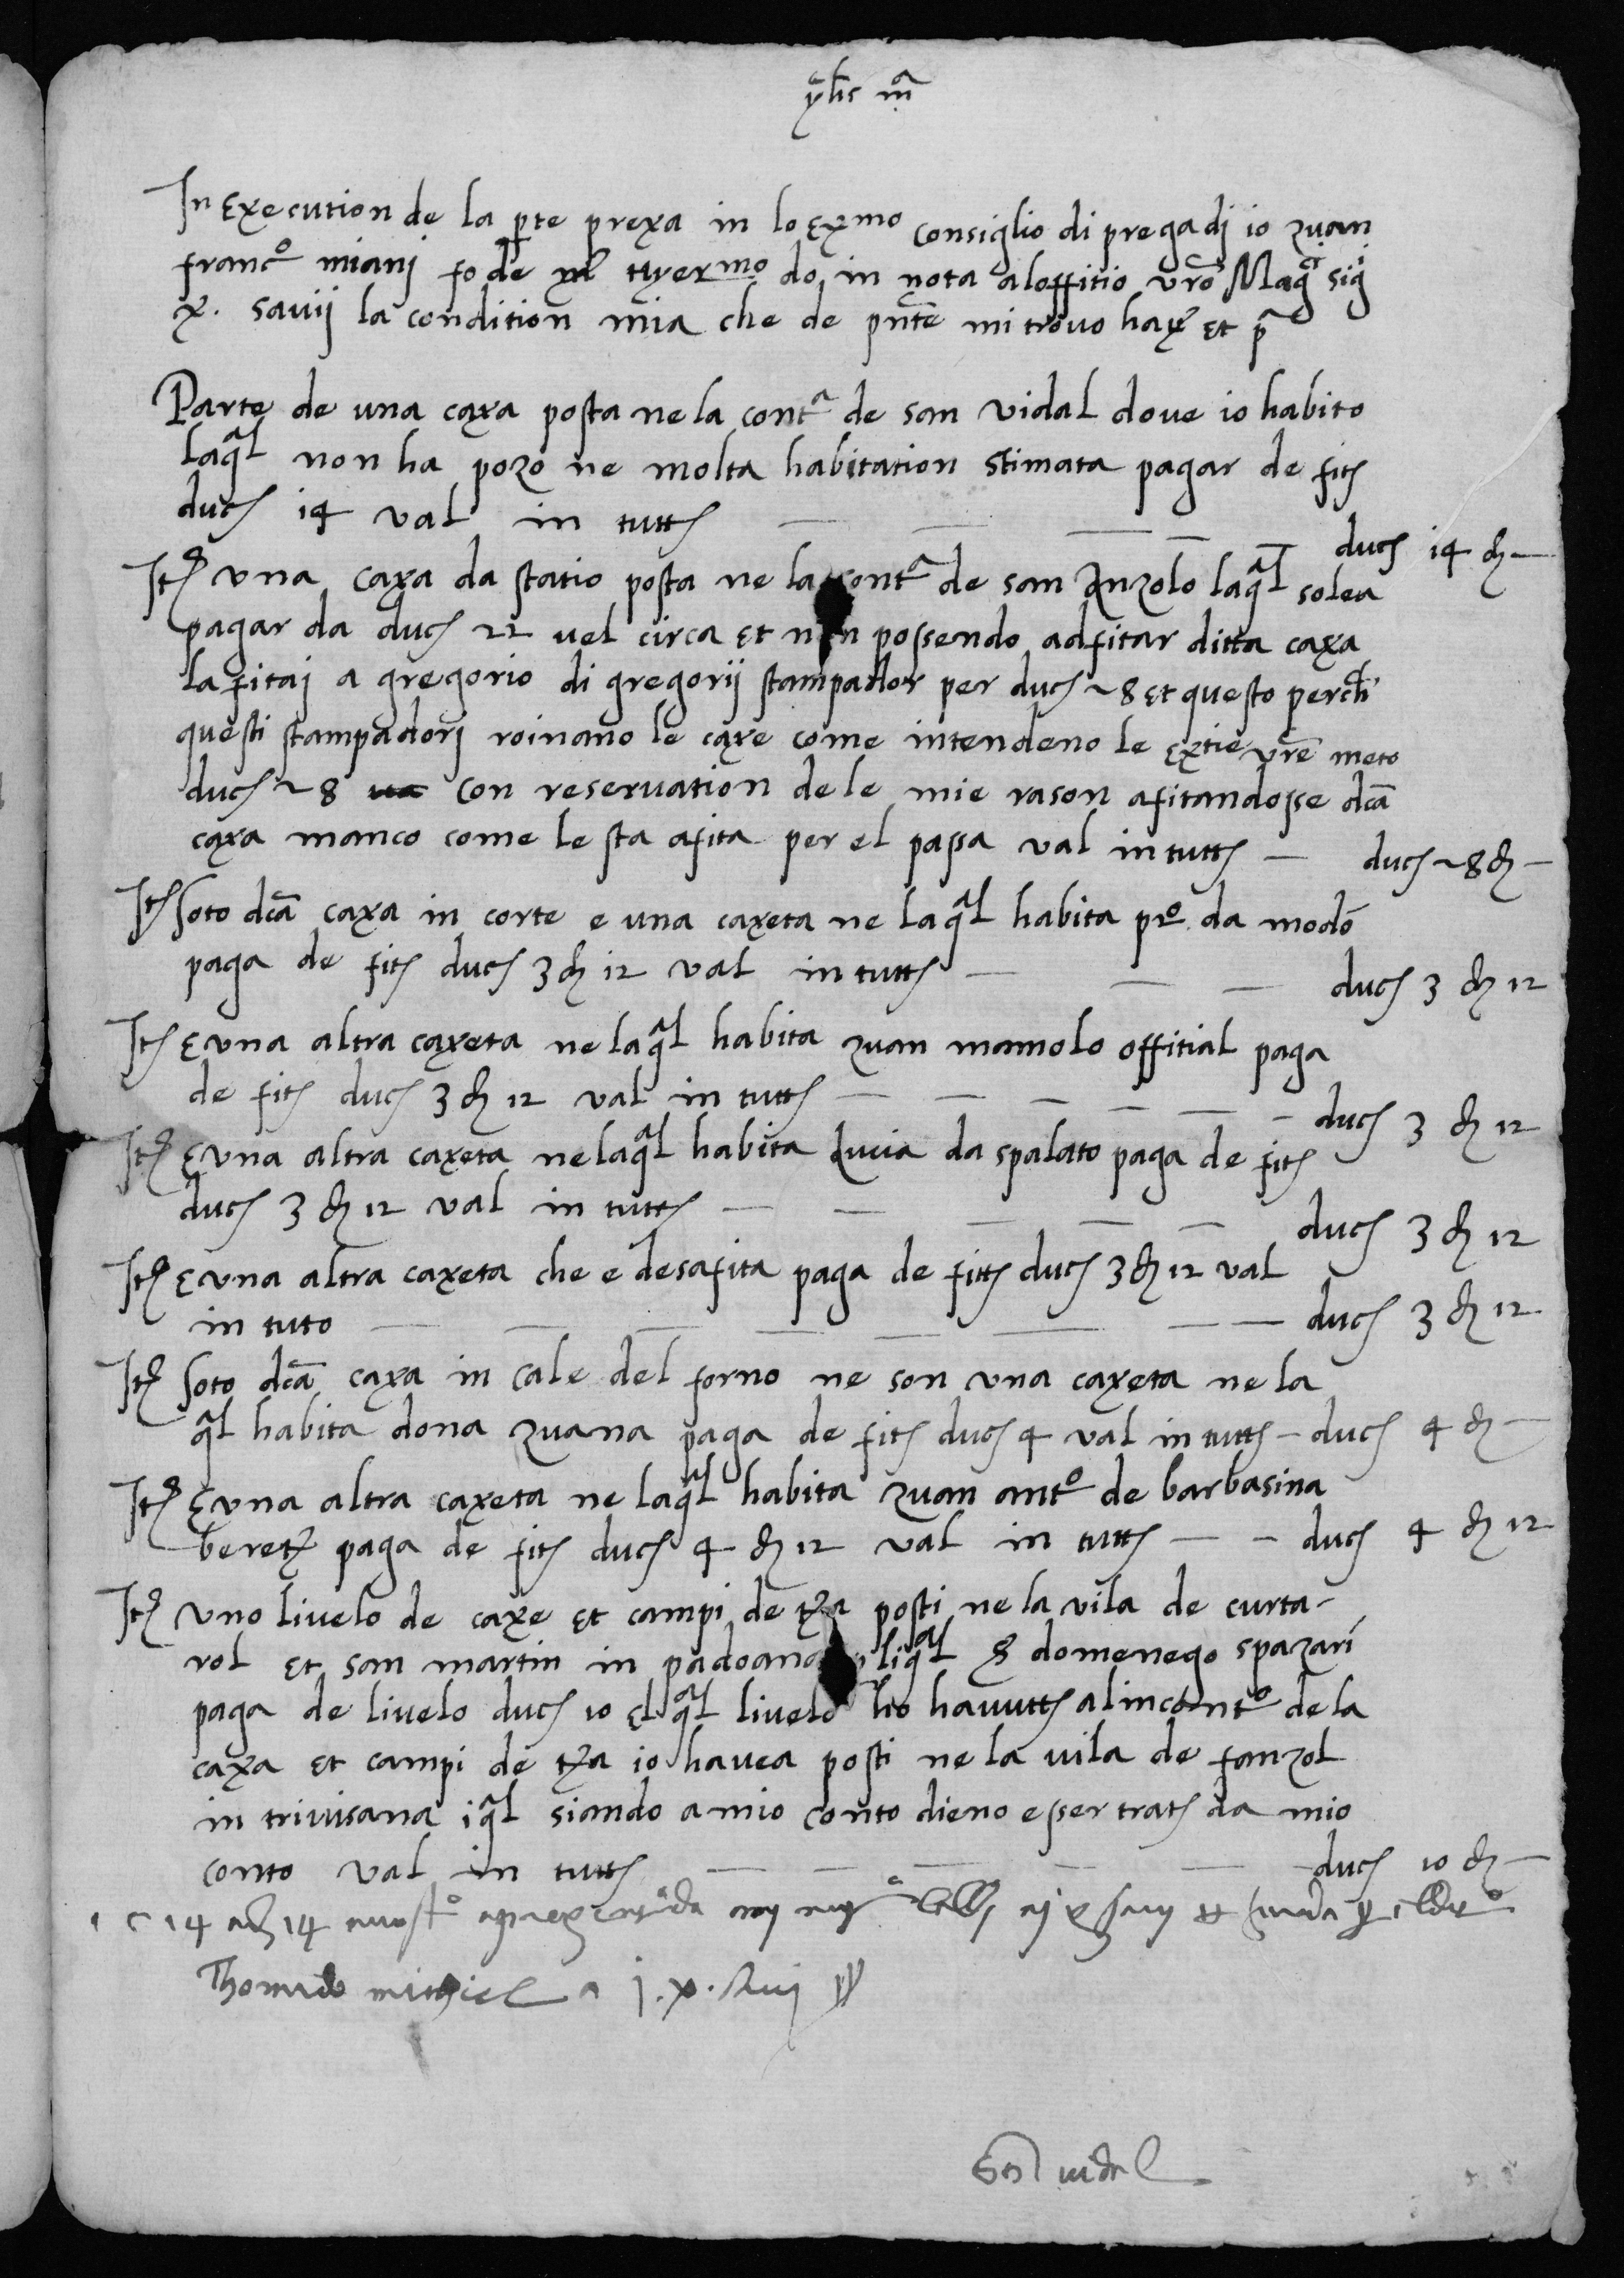 yhs mā
In Execution de la p̱te prexa in lo Exmo consiglio di pregadj io zuan
francº mianj fo de ml hyermo do in nota aloffitio vrō Magcī sigī
x. savij la condition mia che de pn̄te mi trovo haver et pª
Parte de una caxa posta ne la contª de san vidal dove io habito
laqᵃl non ha pozo ne molta habitation stimata pagar de fitº
ducº 14 val in tuttº — — — — — ducº 14 gº —
Itº una caxa da statio posta ne la contª de san Anzolo laqᵃl solea
pagar da ducº 22 vel circa et non possendo adfitar ditta caxa
la fitaj a gregorio di gregorij stampador per ducº 28 et questo perchˉ
questi stampadorj roinano le caxe come intendeno le Extie vrē meto
ducº 28 con reservation de le mie rason afitandosse dcā
caxa manco come le sta afita per el passa val in tuttº — ducº 28 gº —
Itº soto dcā caxa in corte e una caxeta ne laqᵃl habita prº da modō
paga de fitº ducº 3 gº 12 val in tuttº — — — ducº 3 gº 12
Itº E una altra caxeta ne laqᵃl habita zuan mamolo offitial paga
de fitº ducº 3 gº 12 val in tuttº — — — — — — ducº 3 gº 12
Itº E una altra caxeta ne laqᵃl habita lucia da spalato paga de fitº
ducº 3 gº 12 val in tuttº — — — — — ducº 3 gº 12
Itº E una altra caxeta che e desafita paga de fittº ducº 3 gº 12 val
in tuto — — — — — — — — ducº 3 gº 12
Itº soto dcā caxa in cale del forno ne son una caxeta ne la
qᵃl habita dona zuana paga de fitº ducº 4 val in tuttº — ducº 4 gº —
Itº E una altra caxeta ne laqᵃl habita zuan antº de barbasina
bereter paga de fitº ducº 4 gº 12 val in tuttº — — ducº 4 gº 12
Itº uno livelo de caxe et campi de tra posti ne la vila de curta-
rol et san martin in padoana liqᵃl domenego spazarī
paga de livelo ducº 10 Elqᵃl livelo ho havuttº alincontrº de la
caxa et campi de tra io havea posti ne la vila de fanzol
in trivisana iqᵃl siando a mio conto dieno esser tratº da mio
conto val in tuttº — — — — — ducº 10 gº —
1514 adj 14 avostº apresentada
Thomado michiel a j. x. savij
San vidal